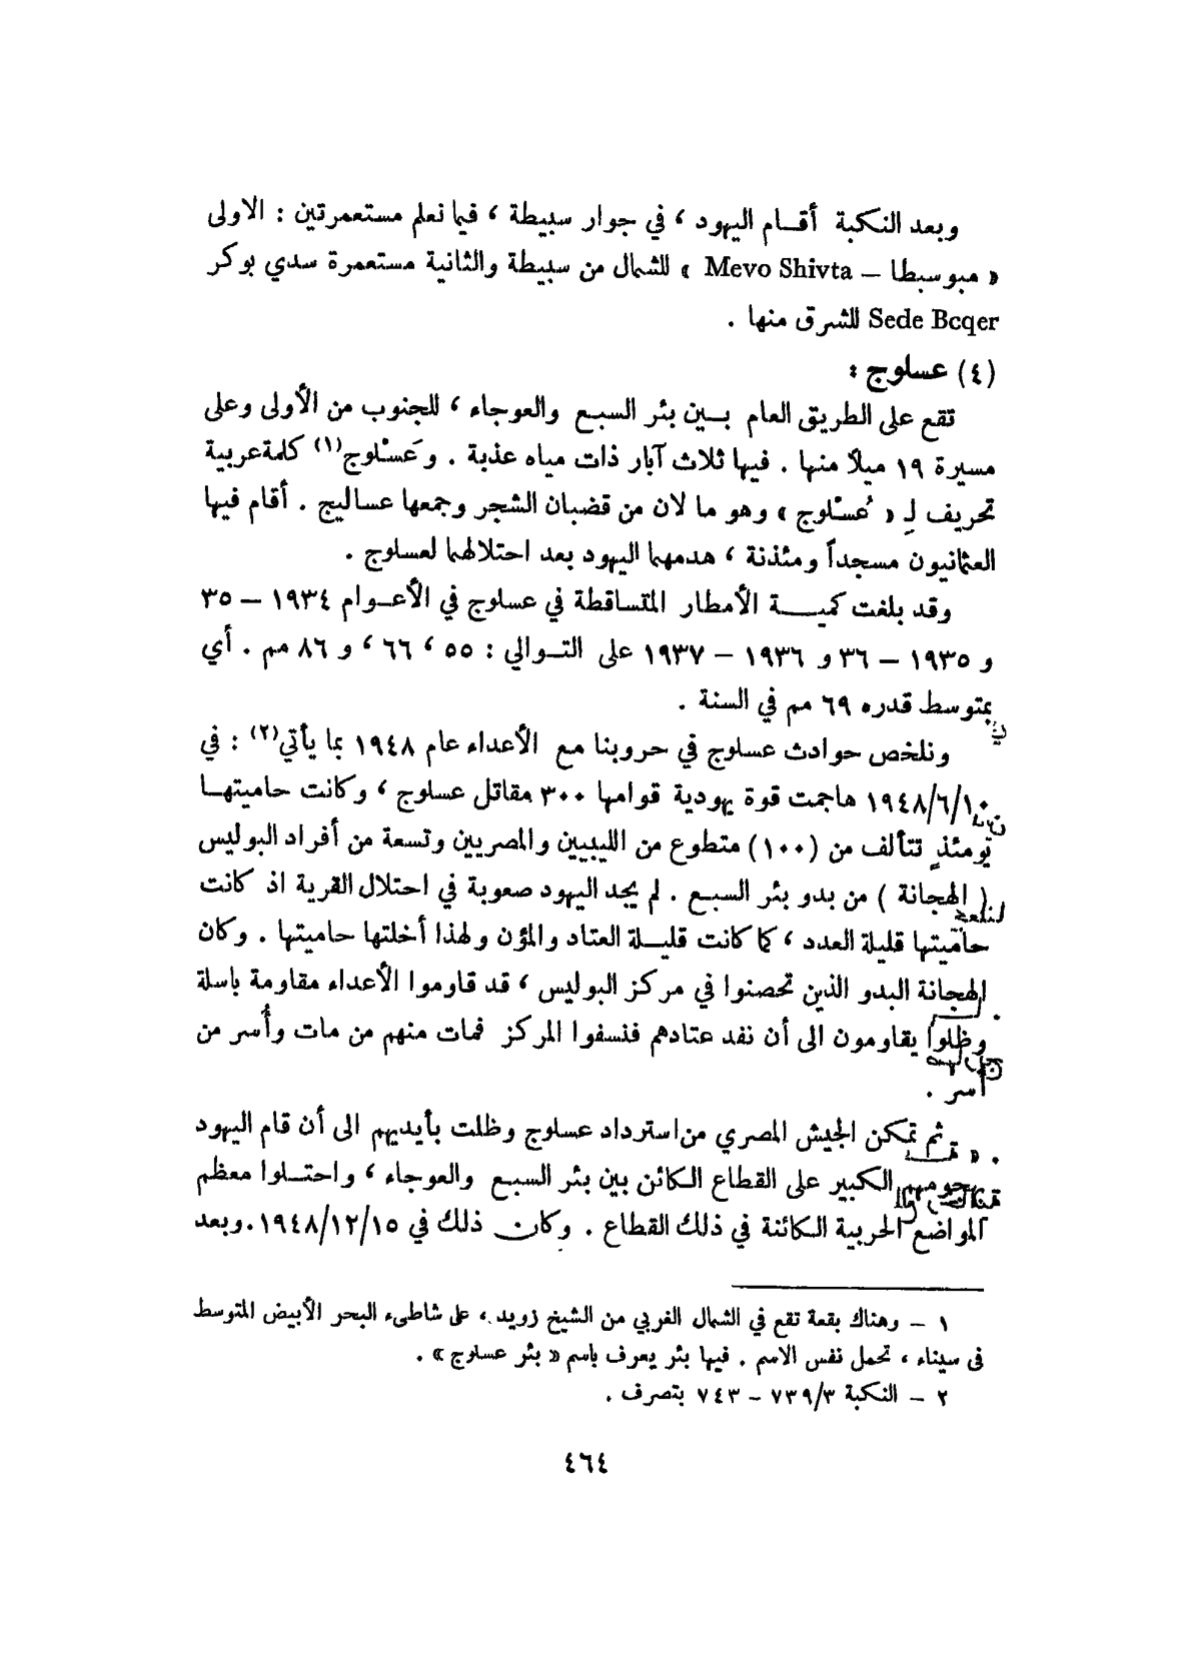 وبعد النكبة أقـام اليهود ، في جوار سبيطة ، فيا نعلم مستعمرتين : الاولى
« مبوسبطا – Mevo Shivta » للشمال من سبيطة والثانية مستعمرة سدي بوكر
Sede Bcqer للشرق منها .
(٤) عسلوج :
تقع على الطريق العام بـين بئر السبع والعوجاء ، للجنوب من الأولى وعلى
مسيرة ١٩ ميلاً منها . فيها ثلاث آبار ذات مياه عذبة . وعَسْلوج(١) كلمة عربية
تحريف لِـ « عُسْلوج » وهو ما لان من قضبان الشجر وجمعها عساليج . أقام فيها
العثمانيون مسجداً ومئذنة ، هدمهما اليهود بعد احتلالهما لعسلوج .
وقد بلغت كميـة الأمطار المتساقطة في عسلوج في الأعـوام ١٩٣٤ – ٣٥
و ١٩٣٥ – ٣٦ و ١٩٣٦ – ١٩٣٧ على التـوالي : ٥٥ ، ٦٦ ، و ٨٦ مم . أي
بمتوسط قدره ٦٩ مم في السنة .
ونلخص حوادث عسلوج في حروبنا مع الأعداء عام ١٩٤٨ بما يأتي(٢) : في
١٩٤٨/٦/١٠ هاجمت قوة يهودية قوامها ٣٠٠ مقاتل عسلوج ، وكانت حاميتهـا
يومئذٍ تتألف من (١٠٠) متطوع من الليبيين والمصريين وتسعة من أفراد البوليس
( الهجانة ) من بدو بئر السبع . لم يجد اليهود صعوبة في احتلال القرية اذ كانت
حاميتها قليلة العدد ، كما كانت قليـلة العتاد والمؤن ولهذا أخلتها حاميتها . وكان
الهجانة البدو الذين تحصنوا في مركز البوليس ، قد قاوموا الأعداء مقاومة باسلة
وظلوا يقاومون الى أن نفد عتادهم فنسفوا المركز فمات منهم من مات وأُسر من
أُسر .
ثم تمكن الجيش المصري من استرداد عسلوج وظلت بأيديهم الى أن قام اليهود
بهجومهم الكبير على القطاع الـكائن بين بئر السبع والعوجاء ، واحتـلوا معظم
المواضع الحربية الـكائنة في ذلك القطاع . وكان ذلك في ١٩٤٨/١٢/١٥. وبعد
١ – وهناك بقعة تقع في الشمال الغربي من الشيخ زويد ، على شاطىء البحر الأبيض المتوسط
في سيناء ، تحمل نفس الاسم . فيها بئر يعرف باسم « بئر عسلوج » .
٢ – النكبة ٧٣٩/٣ – ٧٤٣ بتصرف .
٤٦٤